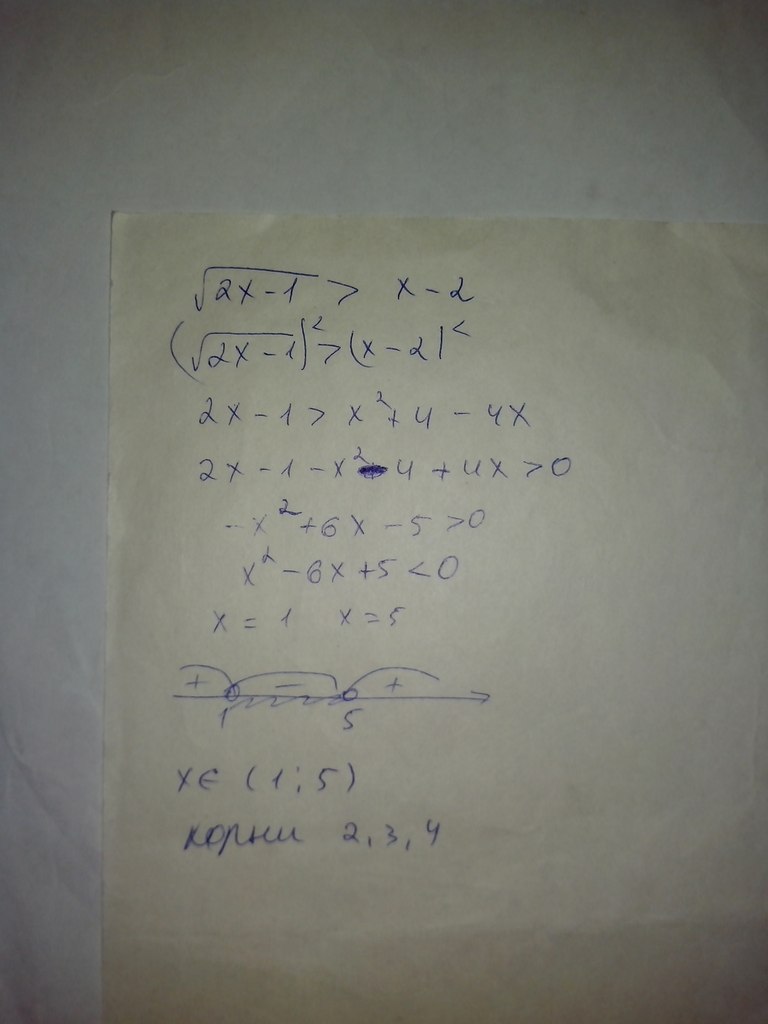 √(2x-1) > x-2
(√(2x-1))² > (x-2)²
2x-1 > x²+4-4x
2x-1-x²-4+4x>0
-x²+6x-5>0
x²-6x+5<0
x=1 x=5
+ - +
1 5
x∈(1;5)
корни 2,3,4